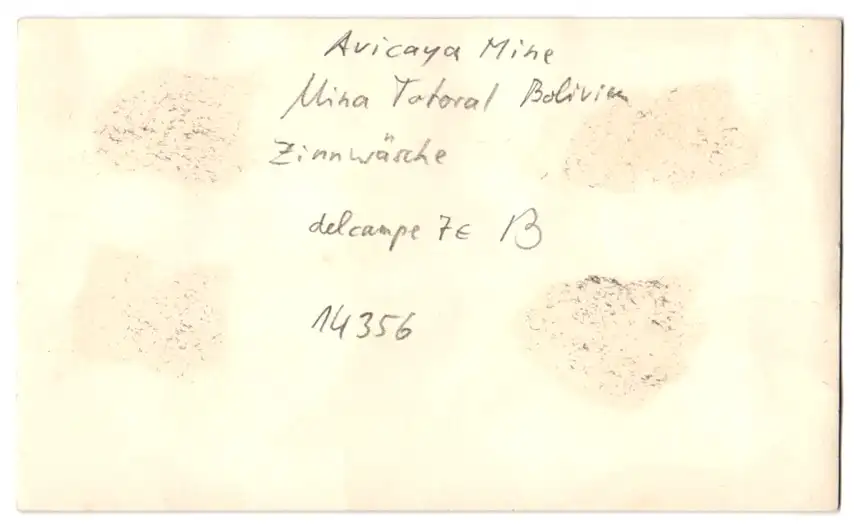 Avicaya Mine
Mina Totoral Bolivien
Zinnwäsche
delcampe 7€ B
14356